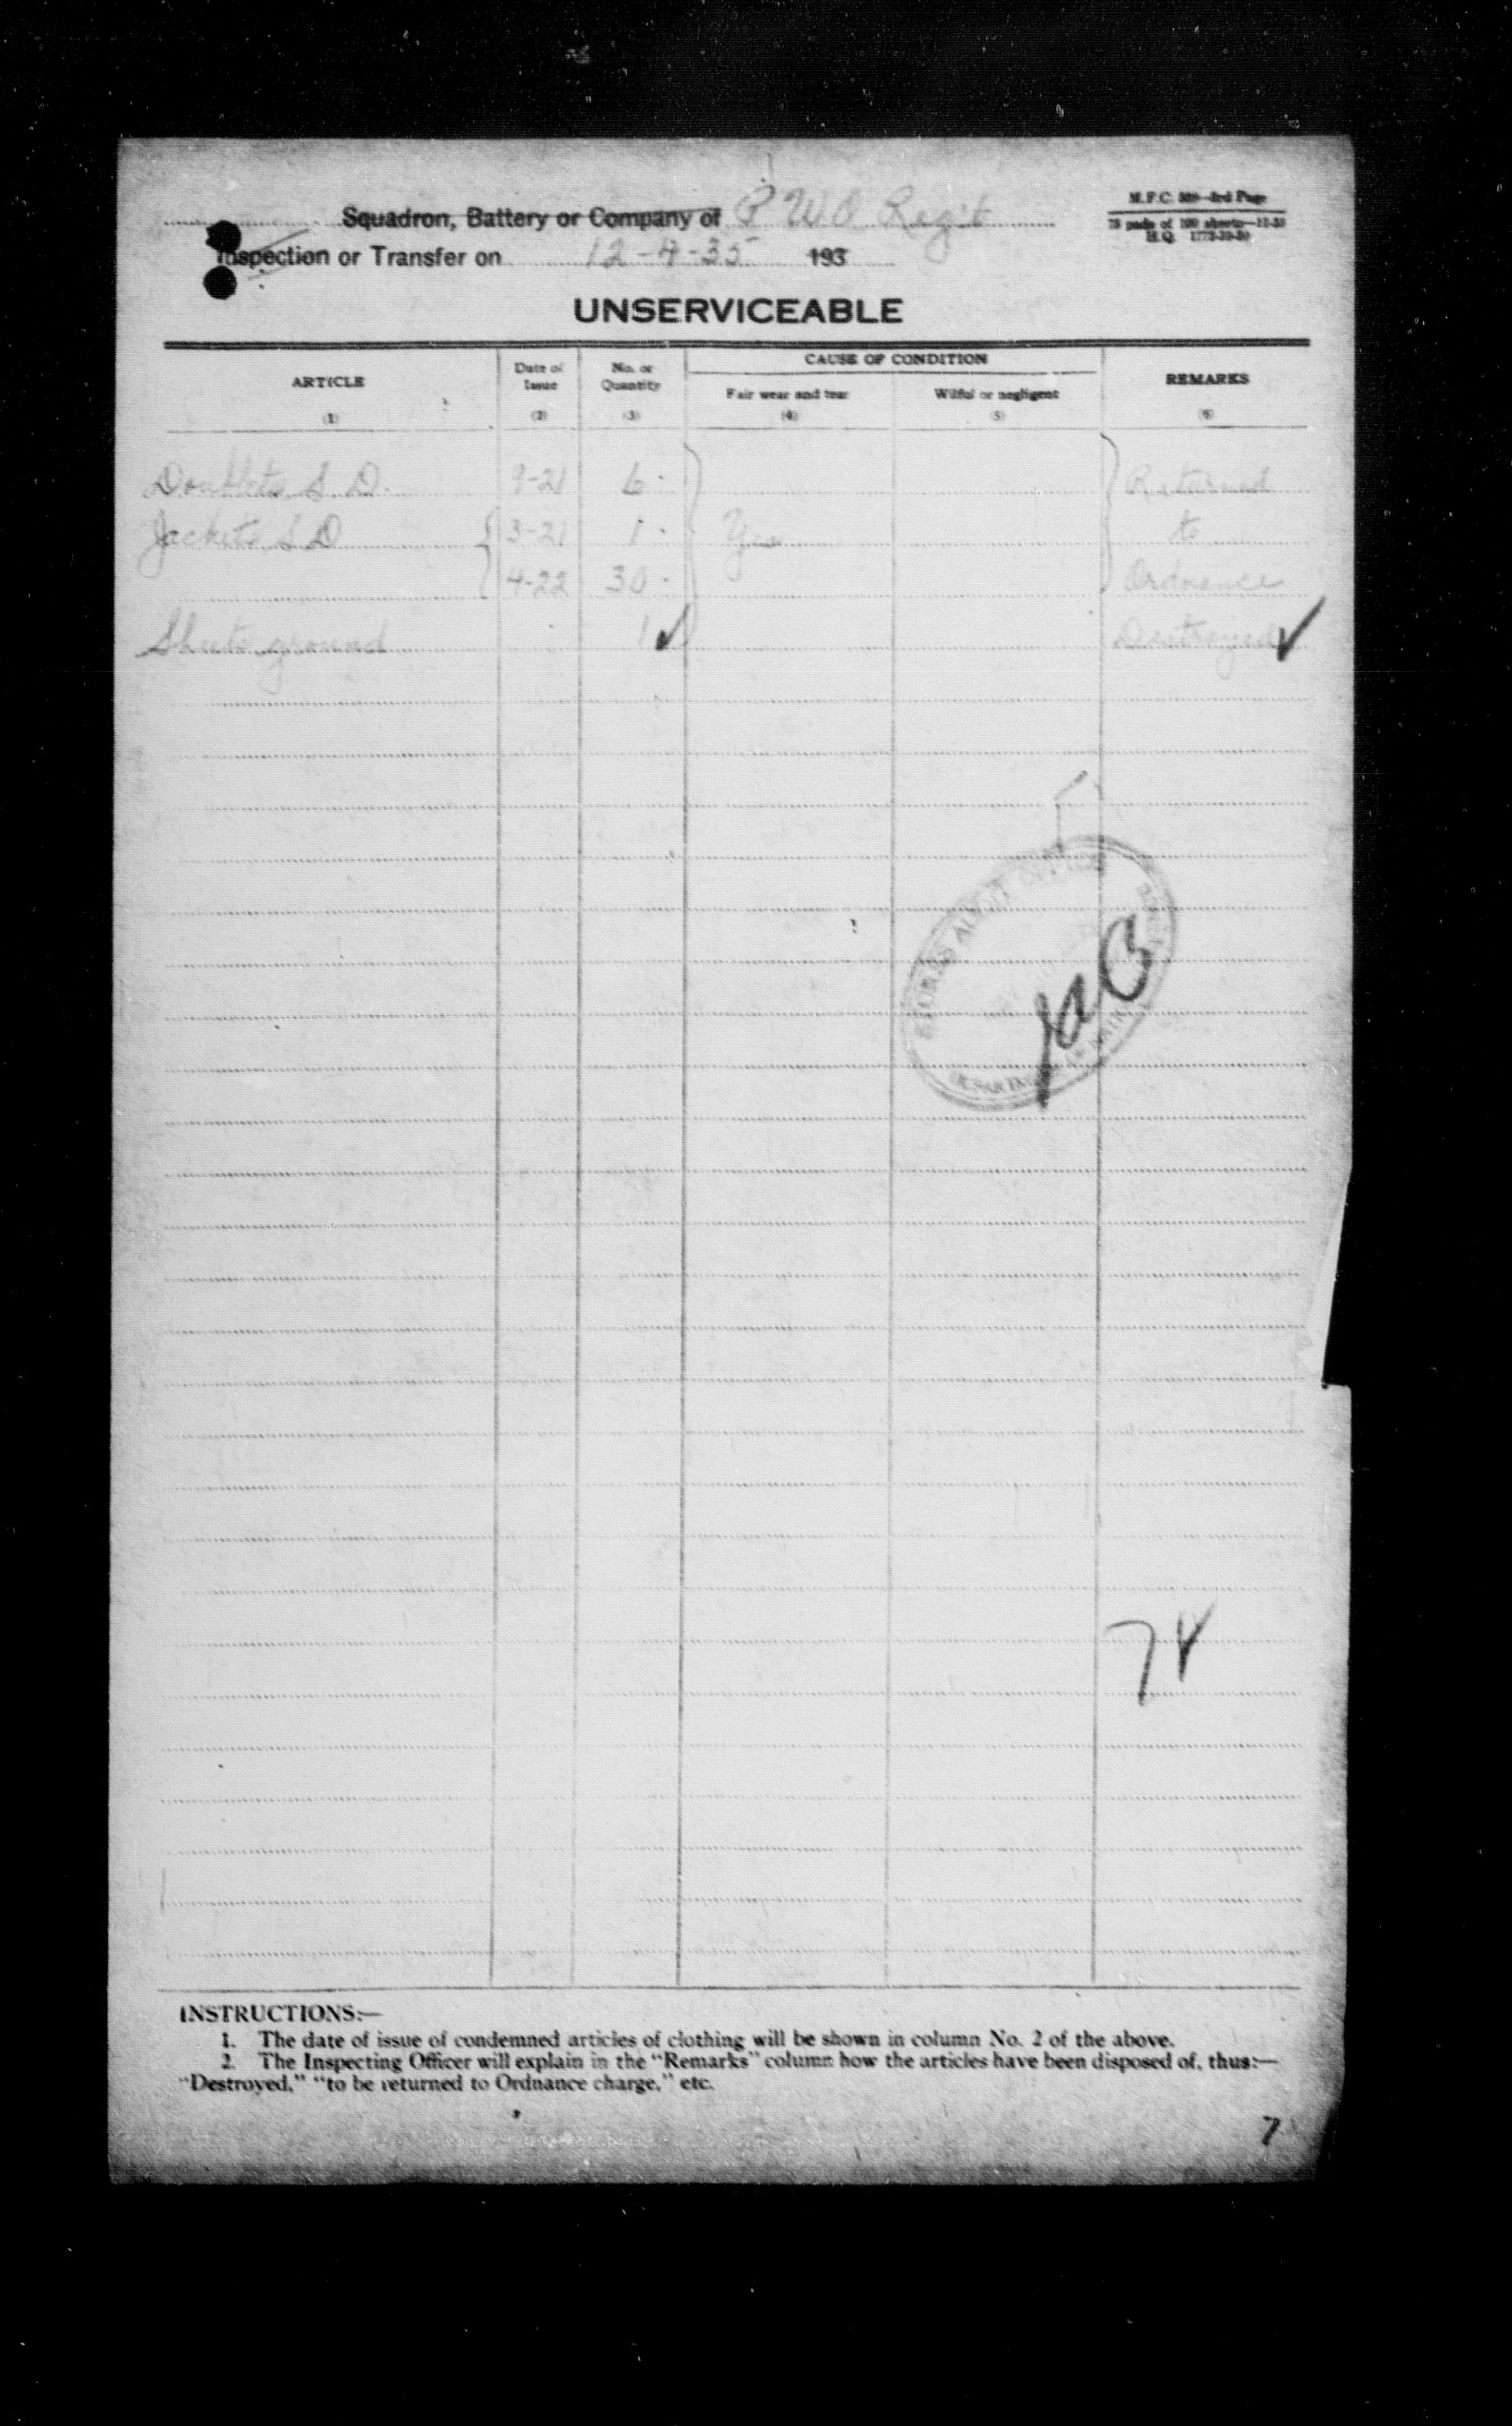 Squadron, Battery or Company of P W O Regit
M.F.C. 3rd Page
75 pads of 100 sheets—11-30
H.Q. 1772-39-30
Inspection or Transfer on 12-4-35 193
UNSERVICEABLE
ARTICLE Date of Issue No. or Quantity CAUSE OF CONDITION REMARKS
Fair wear and tear Wilful or negligent
(1) (2) (3) (4) (5) (6)
Doublets S. D. 9-21 6 Returned
Jackets S D 3-21 1 Yes to
4-22 30 Ordnance
Sheets ground 1 ✓ Destroyed ✓
STORES AUDIT OFFICE
DEPARTMENT OF
74
INSTRUCTIONS:—
1. The date of issue of condemned articles of clothing will be shown in column No. 2 of the above.
2. The Inspecting Officer will explain in the "Remarks" column how the articles have been disposed of, thus:—
"Destroyed," "to be returned to Ordnance charge," etc.
7